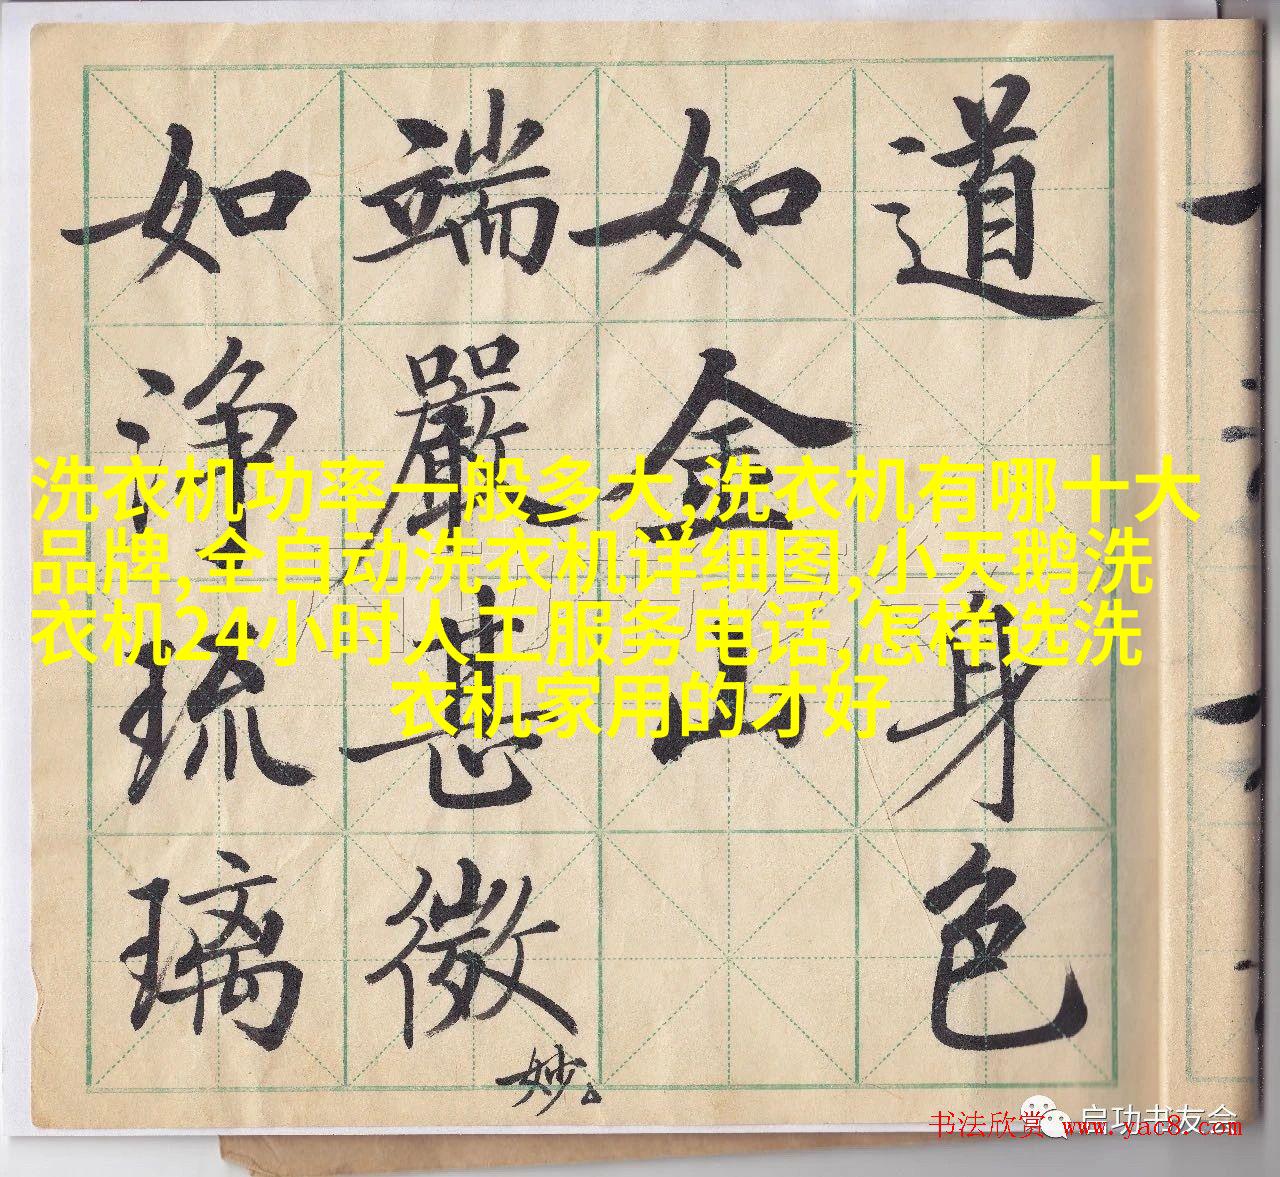 道
身色
如金山
端嚴甚微
妙。
如淨琉璃
洗衣机功率一般多大,洗衣机有哪十大
品牌,全自动洗衣机详细图,小天鹅洗
衣机24小时人工服务电话,怎样选洗
衣机家用的才好
启功书友会
书法欣赏 www.yac8.com